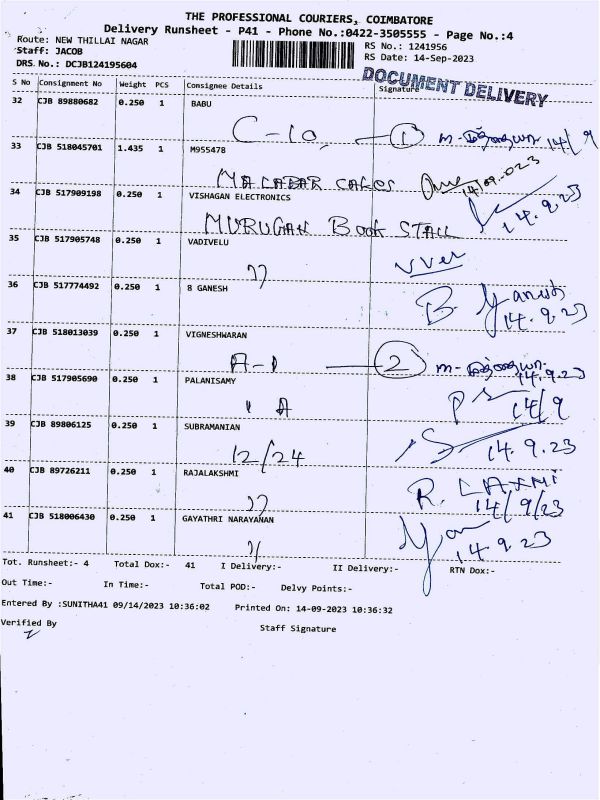 THE PROFESSIONAL COURIERS, COIMBATORE
Delivery Runsheet - P41 - Phone No.:0422-3505555 - Page No.:4
Route: NEW THILLAI NAGAR
Staff: JACOB
DRS. No.: DCJB124195604
RS No.: 1241956
RS Date: 14-Sep-2023
DOCUMENT DELIVERY
S No Consignment No Weight PCS Consignee Details Signature
32 CJB 89880682 0.250 1 BABU
C-10 1 14/9
33 CJB 518045701 1.435 1 M955478
MALABAR CAKES 14/09.023
34 CJB 517909198 0.250 1 VISHAGAN ELECTRONICS
MURUGAN Book STALL 14.9.23
35 CJB 517905748 0.250 1 VADIVELU
" vvel
36 CJB 517774492 0.250 1 8 GANESH
B 14.9.23
37 CJB 518013039 0.250 1 VIGNESHWARAN
A-1 2 14.9.23
38 CJB 517905690 0.250 1 PALANISAMY
1 A 14/9
39 CJB 89806125 0.250 1 SUBRAMANIAN
12/24 14.9.23
40 CJB 89726211 0.250 1 RAJALAKSHMI
" R. LAXMI 14/9/23
41 CJB 518006430 0.250 1 GAYATHRI NARAYANAN
" 14.9.23
Tot. Runsheet:- 4 Total Dox:- 41 I Delivery:- II Delivery:- RTN Dox:-
Out Time:- In Time:- Total POD:- Delvy Points:-
Entered By :SUNITHA41 09/14/2023 10:36:02 Printed On: 14-09-2023 10:36:32
Verified By
Staff Signature